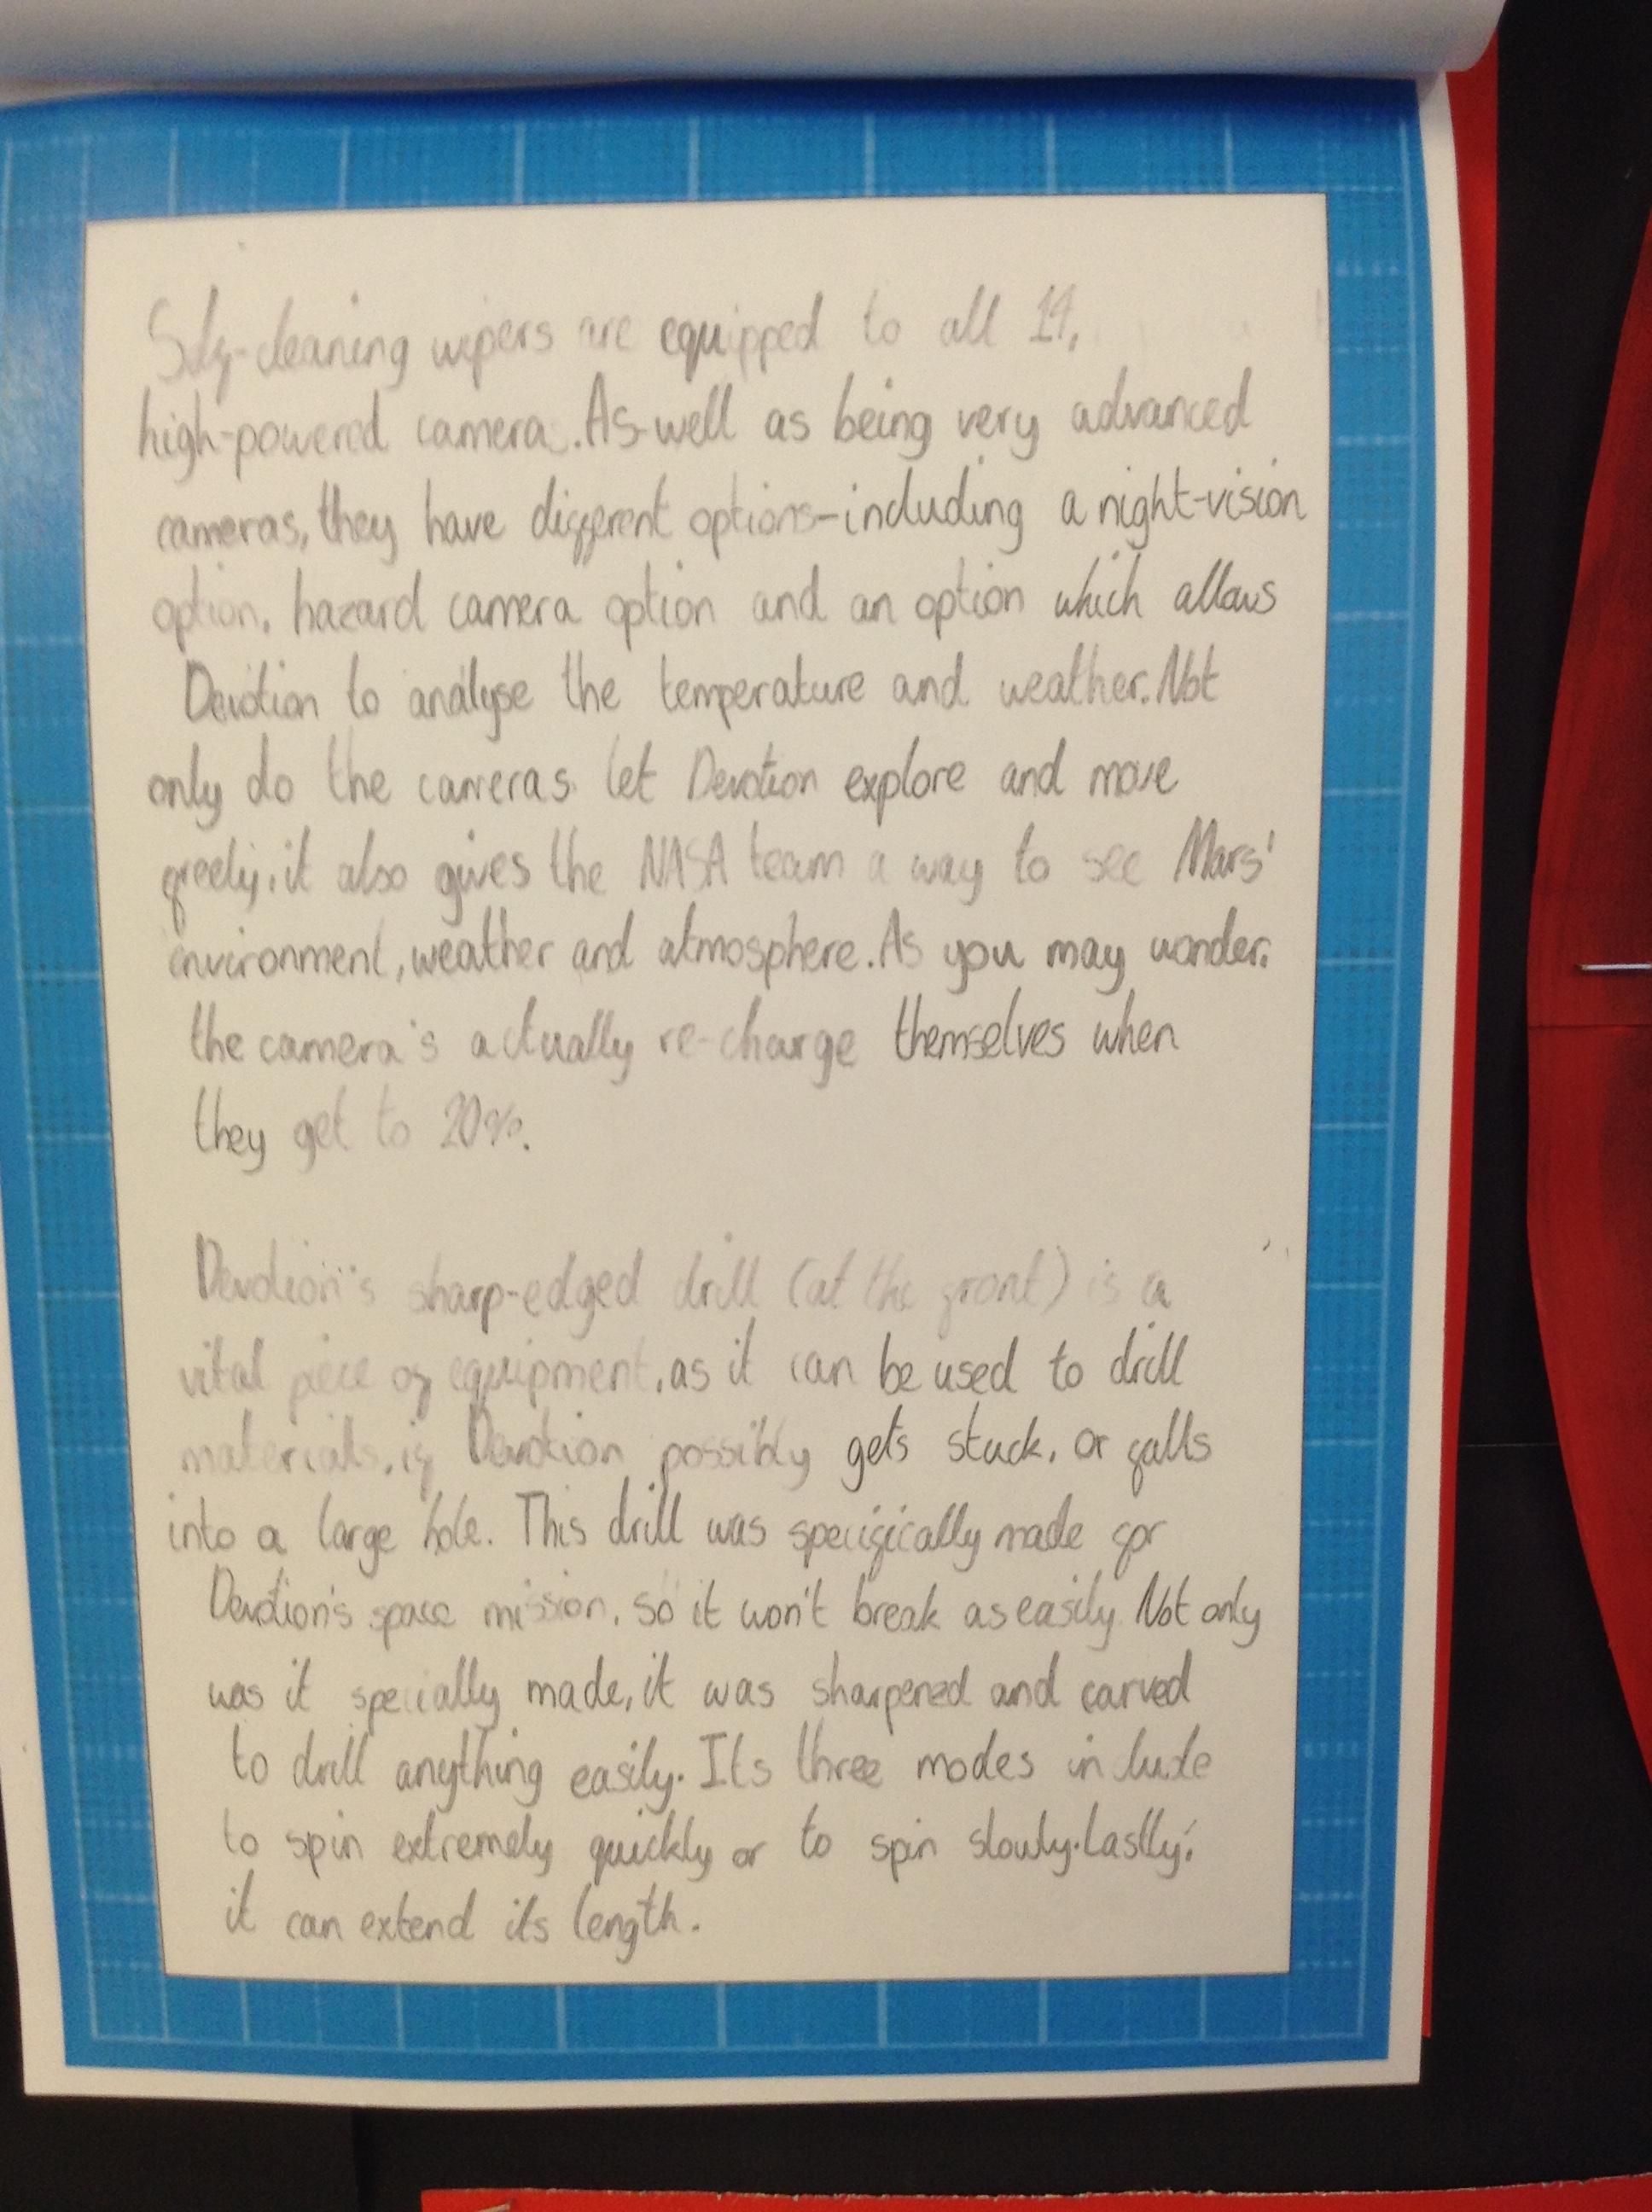 Self-cleaning wipers are equipped to all 14,
high-powered camera. As well as being very advanced
cameras, they have different options-including a night-vision
option, hazard camera option and an option which allows
Devotion to analyse the temperature and weather. Not
only do the cameras let Devotion explore and move
freely, it also gives the NASA team a way to see Mars'
environment, weather and atmosphere. As you may wonder,
the camera's actually re-charge themselves when
they get to 20%.
Devotion's sharp-edged drill (at the front) is a
vital piece of equipment, as it can be used to drill
materials, if Devotion possibly gets stuck, or falls
into a large hole. This drill was specifically made for
Devotion's space mission, so it won't break as easily. Not only
was it specially made, it was sharpened and carved
to drill anything easily. Its three modes include
to spin extremely quickly or to spin slowly. Lastly,
it can extend its length.